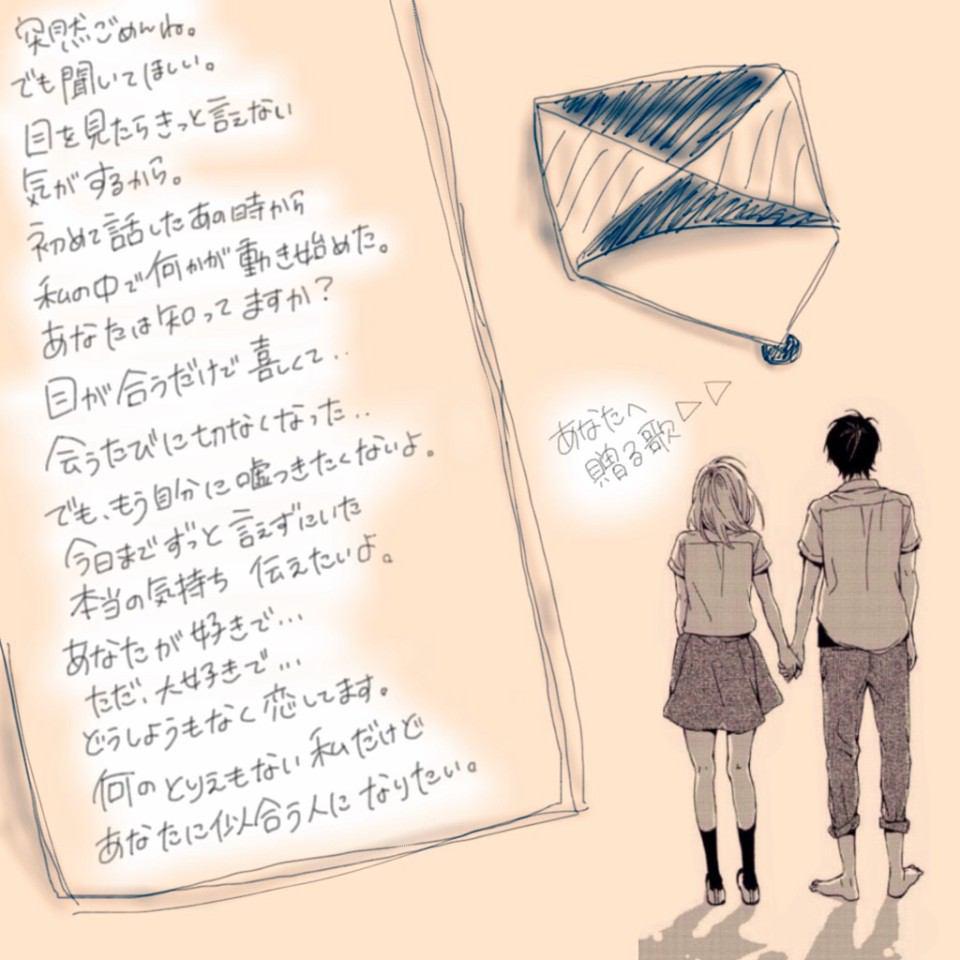 突然ごめんね。
でも聞いてほしい。
目を見たらきっと言えない
気がするから。
初めて話したあの時から
私の中で何かが動き始めた。
あなたは知ってますか?
目が合うだけで喜しくて..
会うたびに切なくなった..
でも、もう自分に嘘つきたくないよ。
今日までずっと言えずにいた
本当の気持ち 伝えたいよ。
あなたが好きで...
ただ、大好きで...
どうしようもなく恋してます。
何のとりえもない私だけど
あなたに似合う人になりたい。
あなたへ
贈る歌